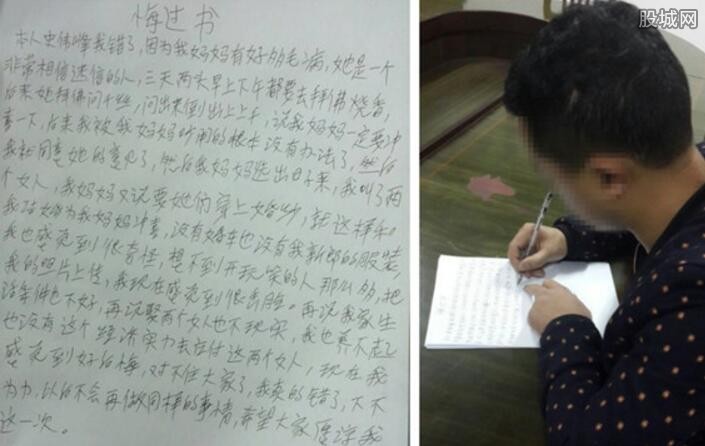 悔过书
本人史伟峰我错了,因为我妈妈有好多毛病,她是一个
非常相信迷信的人,三天两头早上下午都要去拜佛烧香,
后来她拜佛问千丝,问出来倒出上上千,说我妈妈一定要冲
喜一下,后来我被我妈妈吵闹的根本没有办法了,然后
我就同意她的意见了,然后我妈妈选出日子来,我叫了两
个女人,我妈妈又说要她们穿上婚纱,就这样和
我结婚为我妈妈冲喜,没有婚车也没有我新郎的服装,
我也感觉到很奇怪,想不到开玩笑的人那么多,把
我的照片上传,我现在感觉到很丢脸。再说我家生
活条件也不好,再说娶两个女人也不现实,我也养不起
也没有这个经济实力去应付这两个女人,现在我
感觉到好后悔,对不住大家了,我真的错了,大不
为力,以后不会再做同样的事情,希望大家原谅我
这一次。
股城网